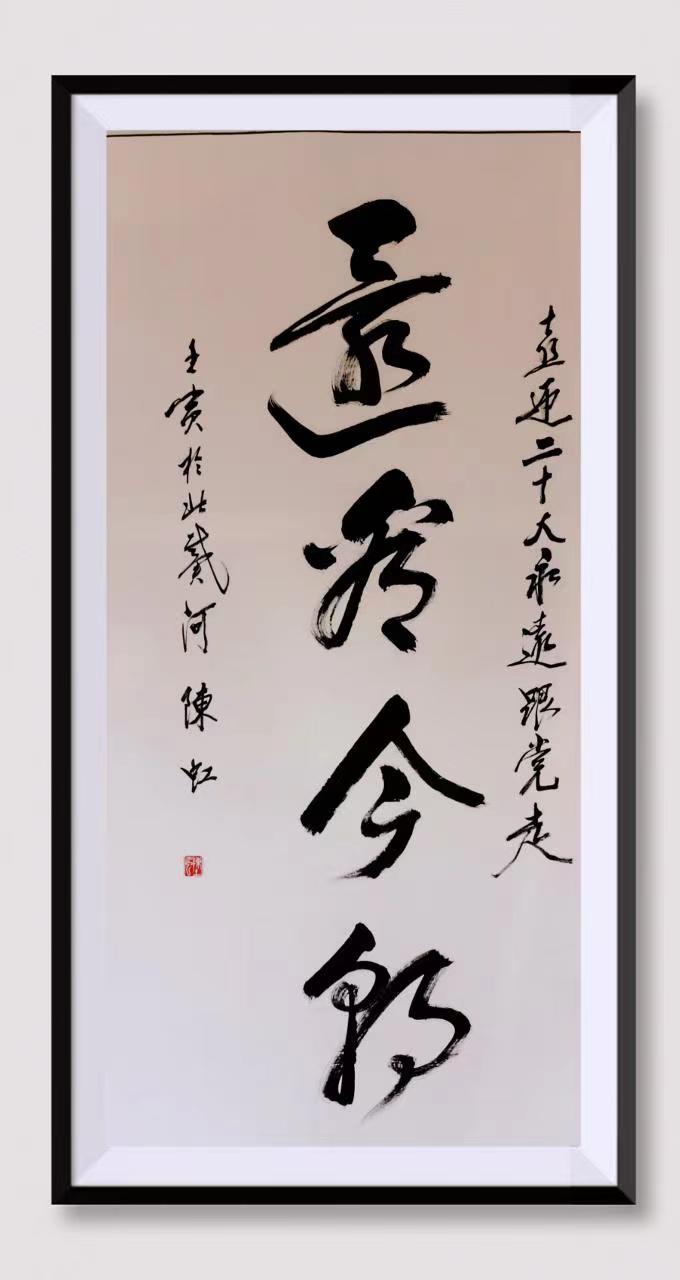 喜迎二十大永远跟党走
還看今朝
壬寅於北戴河 陳虹